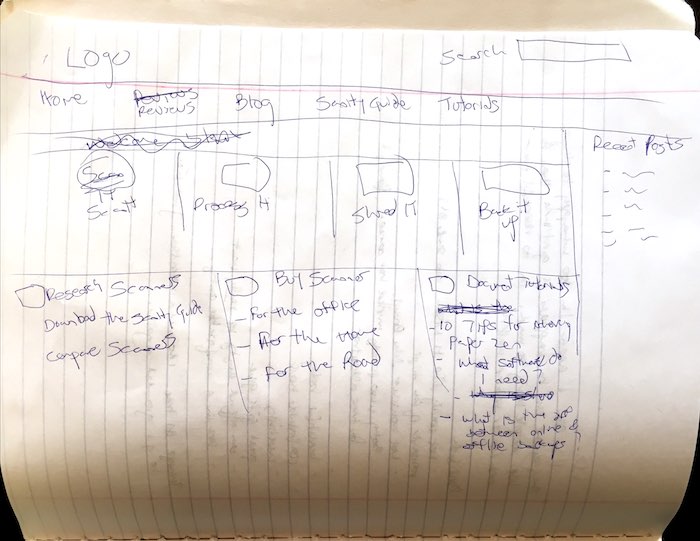 Logo
Search
Home
Reviews
Reviews
Blog
Sanity Guide
Tutorials
Recent Posts
Scan
Scan It
Process It
Shred It
Back it
up
Research Scanners
Download the Sanity Guide
Compare Scanners
Buy Scanner
- For the office
- For the Home
- For the Road
Document Tutorials
- 10 Tips for
Paper Zen
- What software do
I need?
- What is the diff
between online &
offline backups